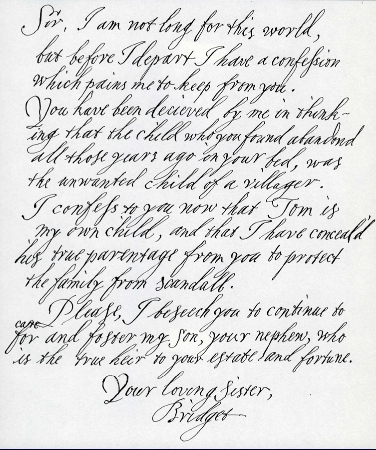 Sir, I am not long for this world,
but before I depart I have a confession
which pains me to keep from you.
You have been decieved by me in think-
ing that the child who you found abandond
all those years ago in your bed, was
the unwanted child of a villager.
I confess to you now that Tom is
my own child, and that I have conceal'd
his true parentage from you to protect
the family from scandall.
Please, I beseech you to continue to
care
for and foster my son, your nephew, who
is the true heir to your estate and fortune.
Your loving Sister,
Bridget